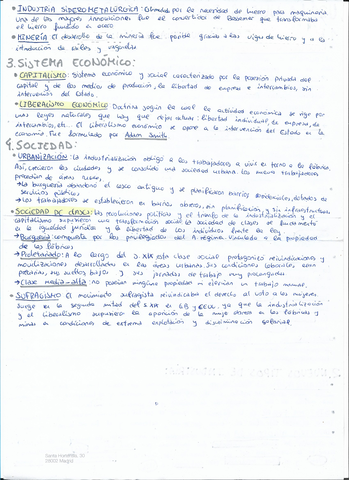 • INDUSTRIA SIDEROMETALÚRGICA: Obtenida por la necesidad de hierro para maquinaria
Una de las mayores innovaciones fue el convertidor de Bessemer que transformaba
el hierro fundido en acero
• MINERÍA El desarrollo de la minería fue posible gracias a las vigas de hierro y a la
introducción de raíles y vagonetas
3. SISTEMA ECONÓMICO:
• CAPITALISMO: Sistema económico y social caracterizado por la posesión privada del
capital y de los medios de producción, la libertad de empresa e intercambios, sin
intervención del Estado.
• LIBERALISMO ECONÓMICO Doctrina según la cual la actividad económica se rige por
unas leyes naturales que hay que respetar: libertad individual, de empresa, de
intercambios, etc. El liberalismo económico se opone a la intervención del Estado en la
economía. Fue formulado por Adam Smith
4. SOCIEDAD:
• URBANIZACIÓN: La industrialización obligó a los trabajadores a vivir en torno a la fábrica.
Así, crecieron las ciudades y se consolidó una sociedad urbana. Los nuevos trabajadores
procedían de áreas rurales.
→ La burguesía abandonó el casco antiguo y se planificaron barrios residenciales, dotados de
servicios públicos.
→ Los trabajadores se establecieron en barrios obreros, sin planificación, y sin infraestructuras
• SOCIEDAD DE CLASES: Las revoluciones políticas y el triunfo de la industrialización y el
capitalismo supusieron una transformación social. La sociedad de clases se fundamentó
en la igualdad jurídica y la libertad de los individuos frente la ley
→ Burguesía compuesta por los privilegiados del A. régimen, vinculada a la propiedad
de las fábricas
→ Proletariado: A lo largo del s. XIX esta clase social protagonizó reivindicaciones y
movilizaciones desarrolladas en las áreas urbanas. Sus condiciones laborales, eran
penurias, sus sueldos bajos y sus jornadas de trabajo muy prolongadas
→ Clase media-alta no poseían ninguna propiedad ni ejercían un trabajo manual.
• SUFRAGISMO El movimiento sufragista reivindicaba el derecho al voto a las mujeres
Surge en la segunda mitad del s. XIX en GB y EEUU, ya que la industrialización
y el liberalismo supusieron la aparición de la mujer obrera en las fábricas y
minas en condiciones de extrema explotación y discriminación salarial